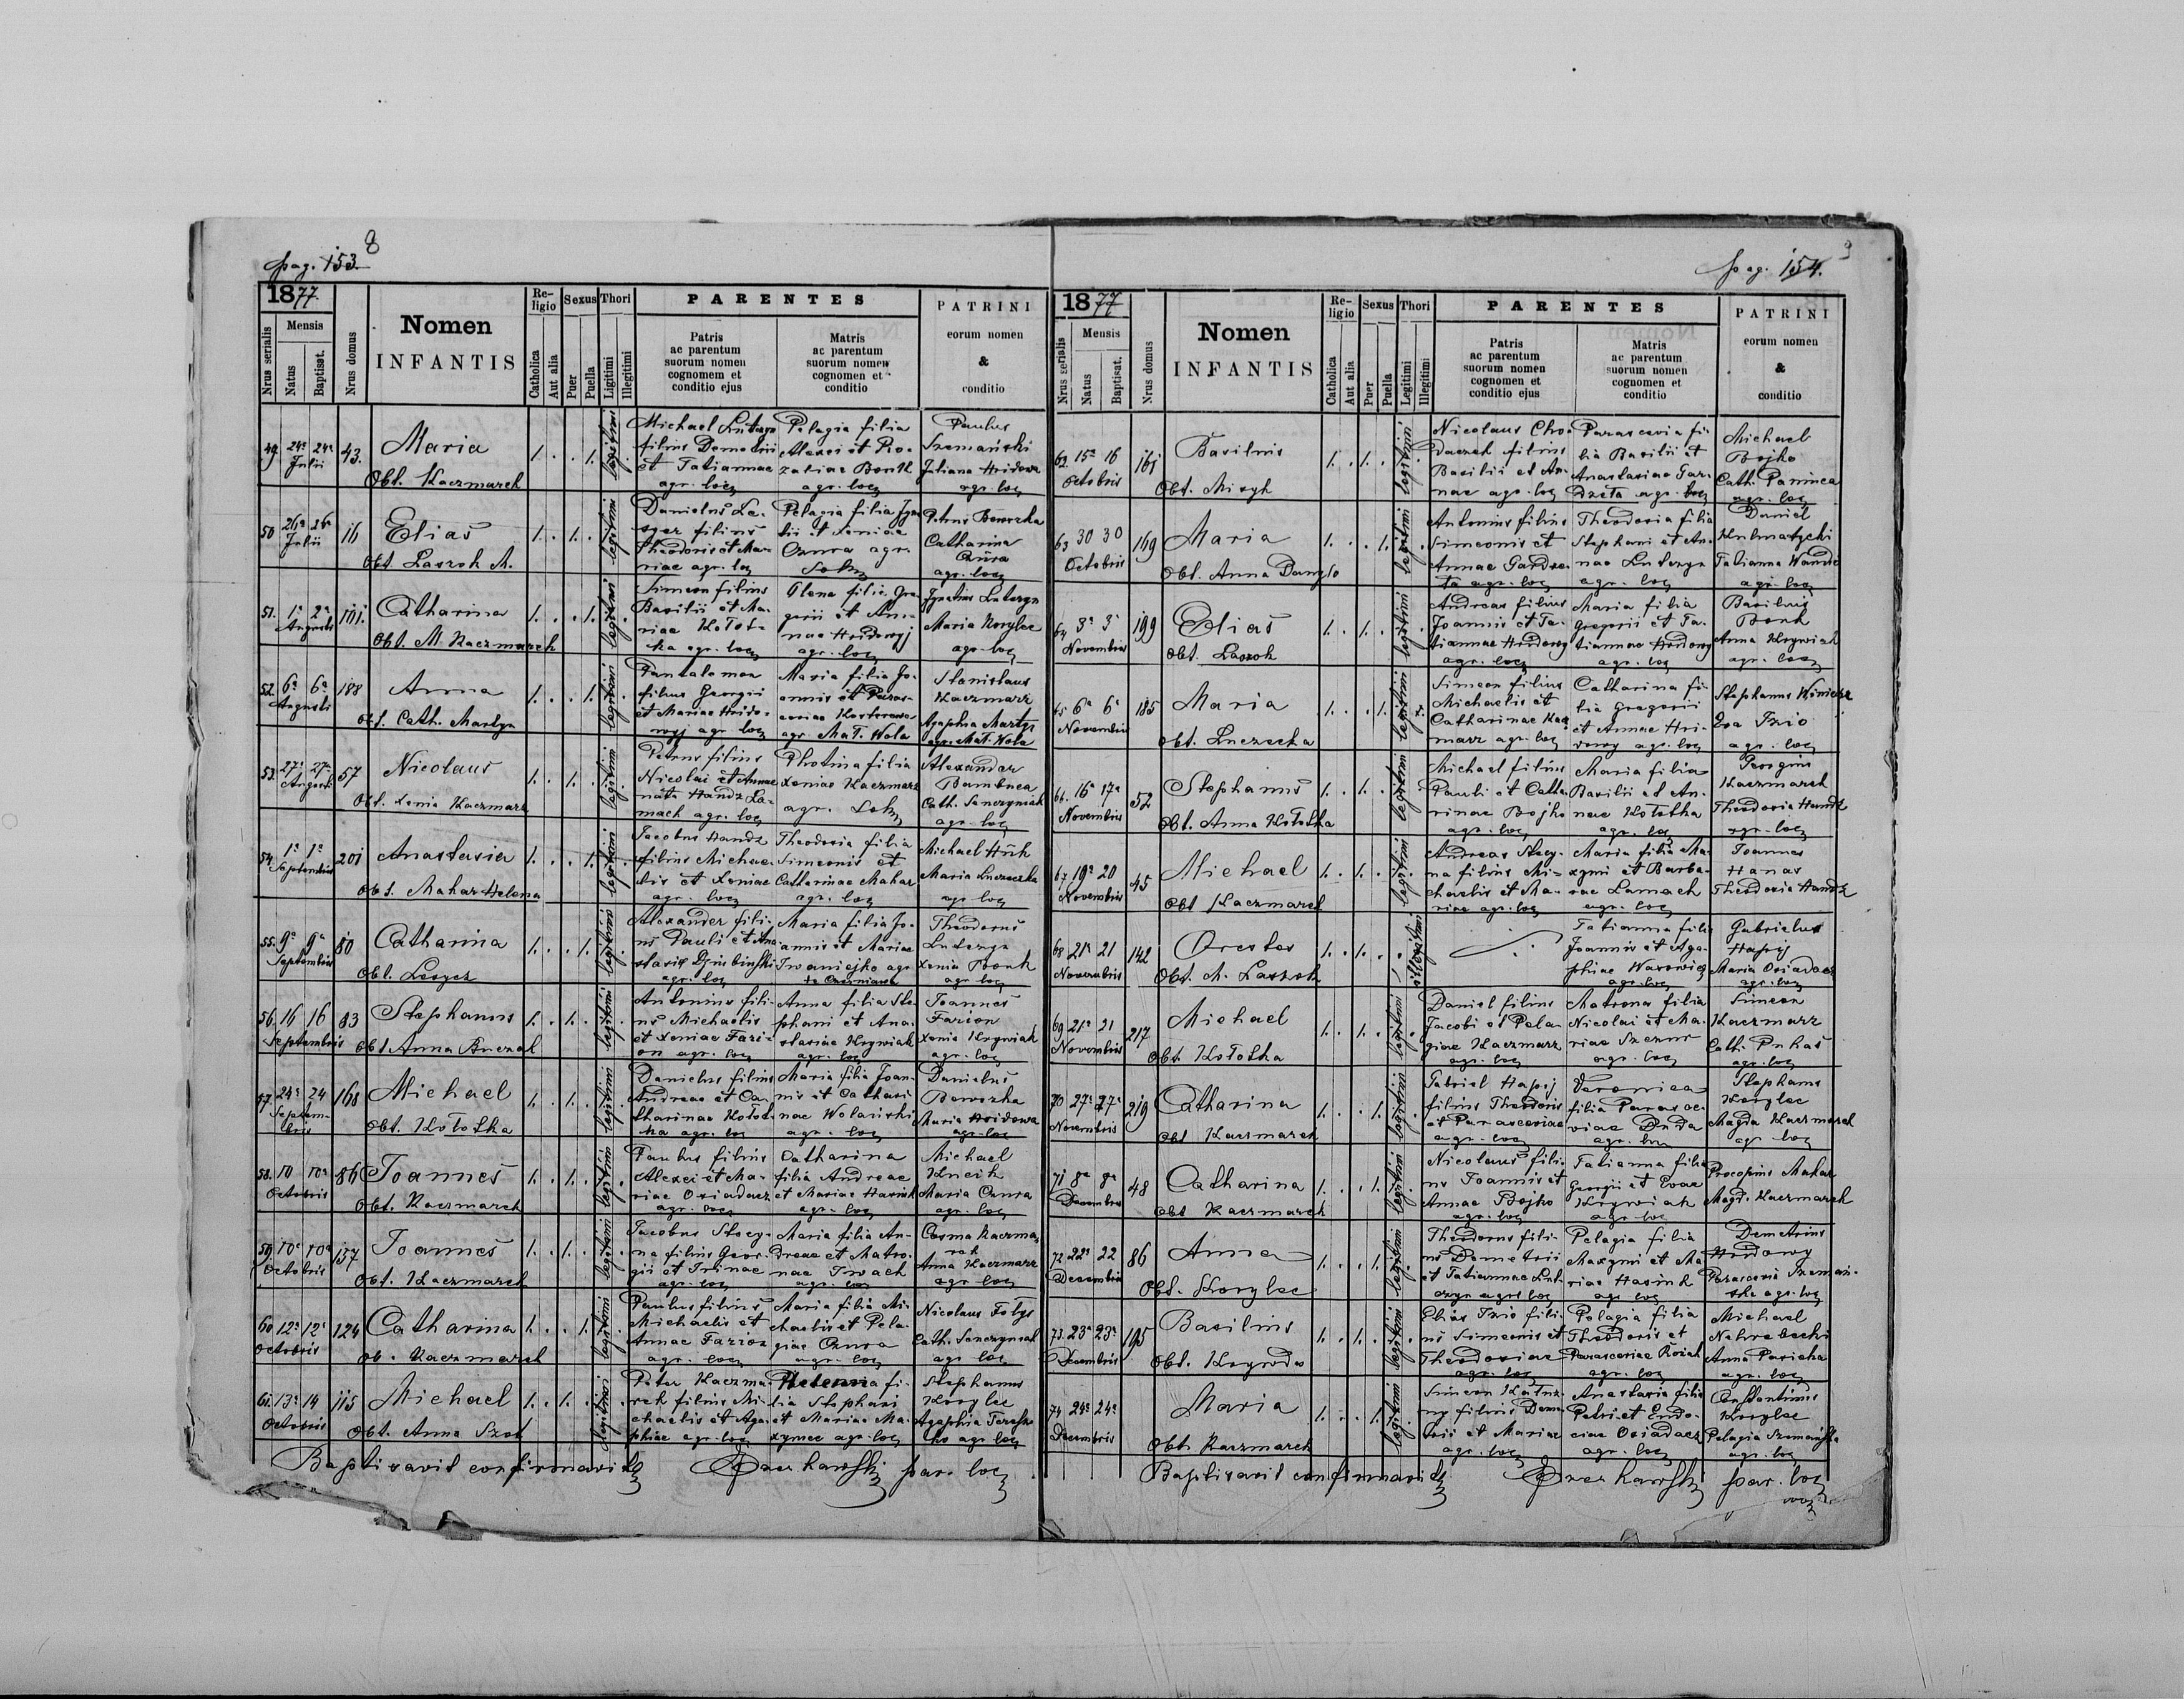 pag. 153. 8
1877
Nrus serialis
Mensis
Natus
Baptisat.
Nrus domus
Nomen
INFANTIS
Religio
Catholica
Aut alia
Sexus
Puer
Puella
Thori
Ligitimi
Illegitimi
PARENTES
Patris
ac parentum
suorum nomen
cognomem et
conditio ejus
Matris
ac parentum
suorum nomen
cognomen et
conditio
PATRINI
eorum nomen
&
conditio
49 24a 24a Julii 43. Maria
Obt. Kaczmarek
1. . . 1. legitimi
Michael Luterzyn
filius Demetrii
et Tatiannae
agr. loc
Pelagia filia
Alexei et Ro-
zaliae Bonk
agr. loc
Paulus
Szemański
Juliana Hridowa
agr. loc
50 26a 26a Julii 16 Elias
Obt. Laszok M.
1. . 1. . legitimi
Danielus Le-
filius
Theodoris et Ma-
riae agr. loc
Pelagia filia
et Xeniae
Oznra agr.
Petrus Beworzka
Catharina
agr. loc
51. 1a 2a Augusti 101. Catharina
Obt. M. Kaczmarek
1. . . 1. legitimi
Simeon filius
Basilii et Ma-
riae Kołot-
ka agr. loc
Olena filia Gre-
gorii et An-
nae Hridowyj
agr. loc
Ignatius Luterzyn
Maria Korylec
agr. loc
52. 6a 6a Augusti 188 Anna
obt. Cath. Martyn
1. . . 1. legitimi
Pantalemon
filius Georgii
et Mariae Hrido-
wyj agr. loc
Maria filia Jo-
annis et Paras-
ceviae
agr. Mał. Wola
Stanislaus
Kaczmarz
Agaphia Martyn
agr. Mał. Wola
53. 27a 27a Augusti 57 Nicolaus
Obt. Xenia Kaczmarz
1. . 1. . legitimi
Petrus filius
Nicolai et Annae
nata Handz La-
mach agr. loc
Photina filia
Xeniae Kaczmarz
agr.
Alexander
Bambuca
Cath. Senczyniak
agr. loc
54. 1a 1a Septembris 201 Anastasia
Obt. Makar Helena
1. . . 1. legitimi
Jacobus Handz
filius Michae-
lis et Xeniae
agr. loc
Theodosia filia
Simeonis et
Catharinae Makar
agr. loc
Michael Hńk
Maria Luczeczka
agr. loc
55. 9a 9a Septembris 80 Catharina
Obt. Lesycz
1. . . 1. legitimi
Alexander fili-
us Pauli et Ana-
stasiae Dziubiński
agr. loc
Maria filia Jo-
annis et Mariae
Iwaniejko agr.
Theodorus
Luterzyn
Xenia Bonk
agr. loc
56. 16 16 Septembris 83 Stephanus
Obt Anna Buczak
1. . 1. . legitimi
Antonius fili-
us Michaelis
et Xeniae Fari-
on agr. loc
Anna filia Ste-
phani et Ana-
stasiae Krywiak
agr. loc
Joannes
Farion
Xenia Krywiak
agr. loc
57. 24a 24 Septem-
bris 168 Michael
Obt. Kołotka
1. . 1. . legitimi
Danielus filius
Andreae et Ca-
tharinae Kołot-
ka agr. loc
Maria filia Joan-
nis et Cathari-
nae Wolański
agr. loc
Danielus
Beworzka
Maria Hridowa
agr. loc
58. 10 10a Octobris 86 Joannes
Obt. Kaczmarek
1. . 1. . legitimi
Paulus filius
Alexei et Ma-
riae Osiadacz
agr. loc
Catharina
filia Andreae
et Mariae Hasiuk
agr. loc
Michael
Kucik
Maria Oznra
agr. loc
59. 10a 10a Octobris 137 Joannes
Obt. Kaczmarek
1. . 1. . legitimi
Jacobus Stecy-
na filius Geor-
gii et Irinae
agr. loc
Maria filia An-
dreae et Matro-
nae Iwach
agr. loc
Cosma Kaczma-
rek
Anna Kaczmarz
agr. loc
60 12a 12a Octobris 124 Catharina
ob. Kaczmarek
1. . . 1. legitimi
Paulus filius
Michaelis et
Annae Farion
agr. loc
Maria filia Mi-
chaelis et Pela-
giae Oznra
agr. loc
Nicolaus Fotys
Cath. Senczyniak
agr. loc
61. 13a 14 Octobris 115 Michael
Obt. Anna Szot
1. . 1. . legitimi
Peter Kaczma-
rek filius Mi-
chaelis et Aga-
phiae agr. loc
Helena fi-
lia Stephani
et Mariae Ma-
xymec agr. loc
Stephanus
Korylec
Agaphia Teresz-
ko agr. loc
Baptisavit confirmavit par. loc
pag. 154. 9
1877
Nrus serialis
Mensis
Natus
Baptisat.
Nrus domus
Nomen
INFANTIS
Religio
Catholica
Aut alia
Sexus
Puer
Puella
Thori
Legitimi
Illegitimi
PARENTES
Patris
ac parentum
suorum nomen
cognomen et
conditio ejus
Matris
ac parentum
suorum nomen
cognomen et
conditio
PATRINI
eorum nomen
&
conditio
62. 15a 16 Octobris 161 Basilius
Obt. Mizyk
1. . 1. . legitimi
Nicolaus Cho-
daczek filius
Basilii et An-
nae agr. loc
Parascevia fi-
lia Basilii et
Anastasiae Gar-
dzeła agr. loc
Michael
Bojko
Cath. Paninca
agr. loc
63 30 30 Octobris 169 Maria
Obt. Anna Danyło
1. . . 1. legitimi
Antonius filius
Simeonis et
Annae Gardze-
ła agr. loc
Theodosia filia
Stephani et An-
nae Luterzyn
agr. loc
Daniel
Kulmatycki
Tatianna Wandio
agr. loc
64 3a 3 Novembris 199 Elias
Obt. Laszok
1. . 1. . legitimi
Andreas filius
Joannis et Ta-
tiannae Hridowy
agr. loc
Maria filia
Gregorii et Ta-
tiannae Hridowy
agr. loc
Basilius
Bonk
Anna Krywiak
agr. loc
65 6a 6a Novembris 185 Maria
Obt. Luczecka
1. . . 1. legitimi
Simeon filius
Michaelis et
Catharinae Kacz-
marz agr. loc
Catharina fi-
lia Gregorii
et Annae Hri-
dowy agr. loc
Stephanus Winiarz
Eva Izio
agr. loc
66. 16a 17a Novembris 52 Stephanus
Obt. Anna Kołotka
1. . 1. . legitimi
Michael filius
Pauli et Catha-
rinae Bojko
agr. loc
Maria filia
Basilii et An-
nae Kołotka
agr. loc
Georgius
Kaczmarek
Theodosia Handz
agr. loc
67 19a 20 Novembris 45 Michael
Obt Kaczmarek
1. . 1. . legitimi
Andreas Stecy-
na filius Mi-
chaelis et Ma-
riae agr. loc
Maria filia Ma-
xymi et Barba-
rae Lamach
agr. loc
Joannes
Hanas
Theodosia Handz
68 21a 21 Novembris 142 Orestes
Obt. M. Laszok
1. . 1. . illegitimi
Tatianna filia
Joannis et Aga-
phiae Warowicz
agr. loc
Gabrielus
Hapij
Maria Osiadacz
agr. loc
69 21a 21 Novembris 217 Michael
Obt. Kołotka
1. . 1. . legitimi
Daniel filius
Jacobi et Pela-
giae Kaczmarz
agr. loc
Matrona filia
Nicolai et Ma-
riae Szczur
agr. loc
Simeon
Kaczmarz
Cath. Pukas
agr. loc
70 27a 27a Novembris 219 Catharina
Obt Kaczmarek
1. . . 1. legitimi
Gabriel Hapij
filius Theodoris
et Parasceviae
agr. loc
Veronica
filia Parasce-
viae Duda
agr. loc
Stephanus
Korylec
Magda Kaczmarek
agr. loc
71 8a 8a Decembris 48 Catharina
Obt Kaczmarek
1. . . 1. legitimi
Nicolaus fili-
us Joannis et
Annae Bojko
agr. loc
Tatianna filia
Georgii et Evae
Krywiak
agr. loc
Procopius Makar
Magd. Kaczmarek
72 22a 22 Decembris 86 Anna
Obt. Korylec
1. . . 1. legitimi
Theodorus fili-
us Demetrii
et Tatiannae Lut-
erzyn agr. loc
Pelagia filia
Maxymi et Ma-
riae Hasiuk
agr. loc
Demetrius
Hridowy
Parascevia Szemań-
ska agr. loc
73. 23a 23a Decembris 195 Basilius
Obt. Krywda
1. . 1. . legitimi
Elias Izio fili-
us Simeonis et
Theodosiae
agr. loc
Pelagia filia
Theodoris et
Parasceviae Rożak
agr. loc
Michael
Nahrebecki
Anna Pasicka
agr. loc
74 24a 24a Decembris Maria
Obt. Kaczmarek
1. . . 1. legitimi
Simeon
filius Deme-
trii et Mariae
agr. loc
Anastasia filia
Petri et Eudo-
ciae Osiadacz
agr. loc
Constantinus
Korylec
Pelagia Szemańska
agr. loc
Baptisavit confirmavit par. loc